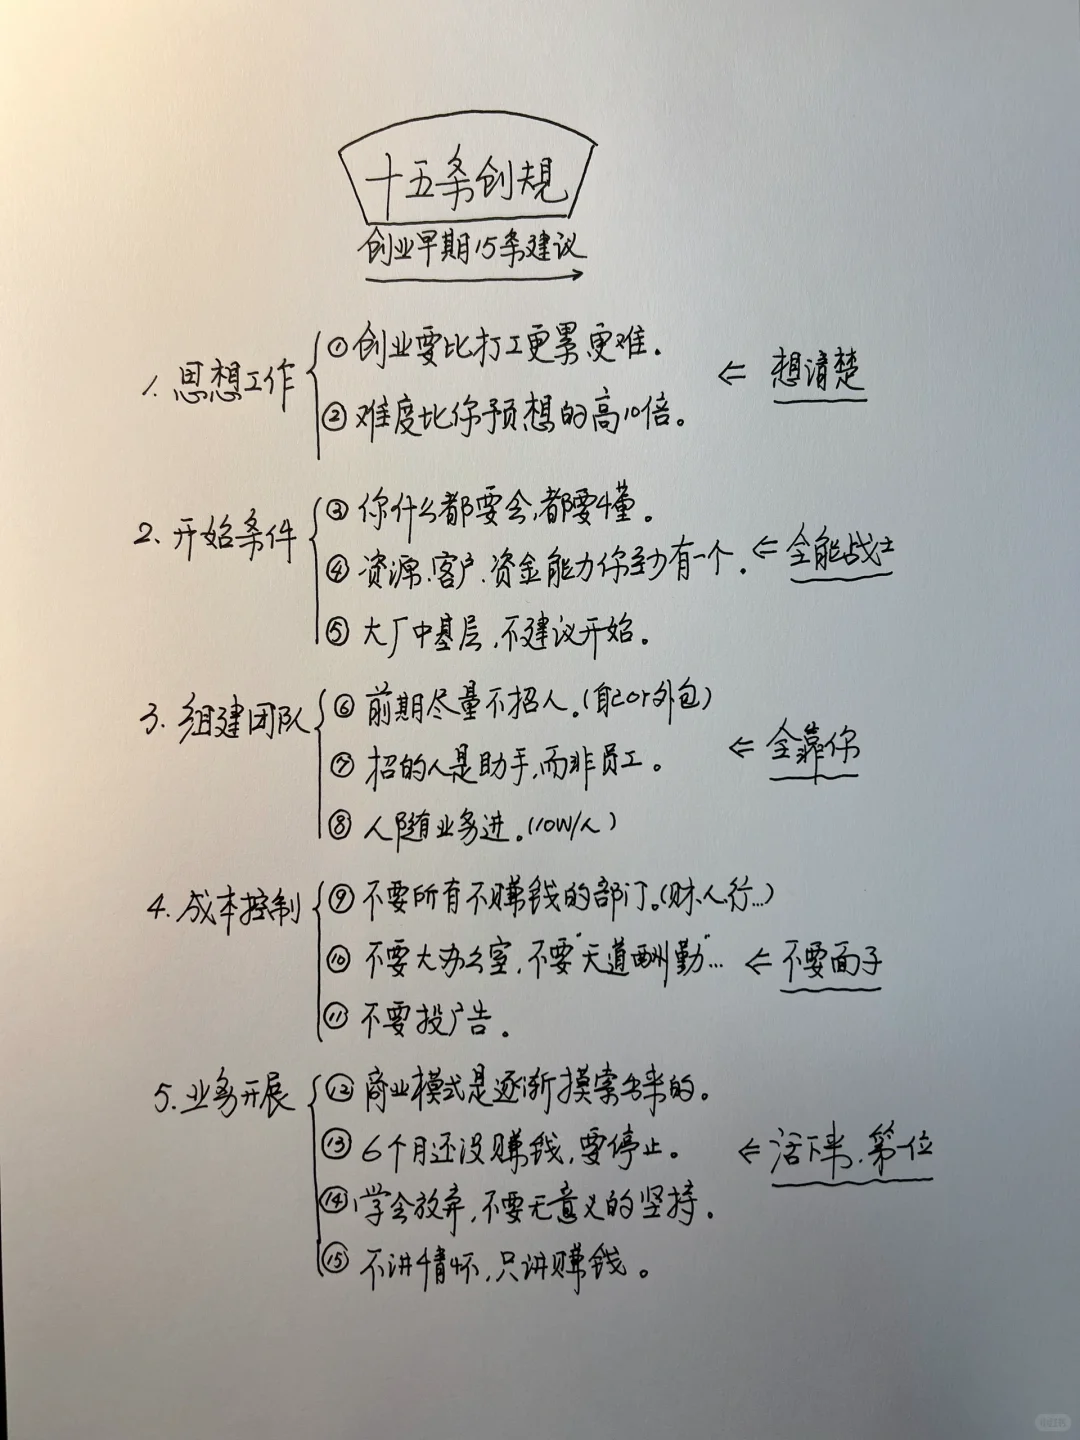 十五条创规
创业早期15条建议
1. 思想工作
① 创业要比打工更累、更难.
② 难度比你预想的高10倍。
⇐ 想清楚
2. 开始条件
③ 你什么都要会,都要懂。
④ 资源、客户、资金能力你至少有一个.
⑤ 大厂中基层,不建议开始。
⇐ 全能战士
3. 组建团队
⑥ 前期尽量不招人。(自己or外包)
⑦ 招的人是助手,而非员工。
⑧ 人随业务进。(10W/人)
⇐ 全靠你
4. 成本控制
⑨ 不要所有不赚钱的部门。(财、人、行...)
⑩ 不要大办公室,不要"天道酬勤"...
⑪ 不要投广告。
⇐ 不要面子
5. 业务开展
⑫ 商业模式是逐渐摸索出来的。
⑬ 6个月还没赚钱,要停止。
⑭ 学会放弃,不要无意义的坚持。
⑮ 不讲情怀,只讲赚钱。
⇐ 活下来,第一位
小红书